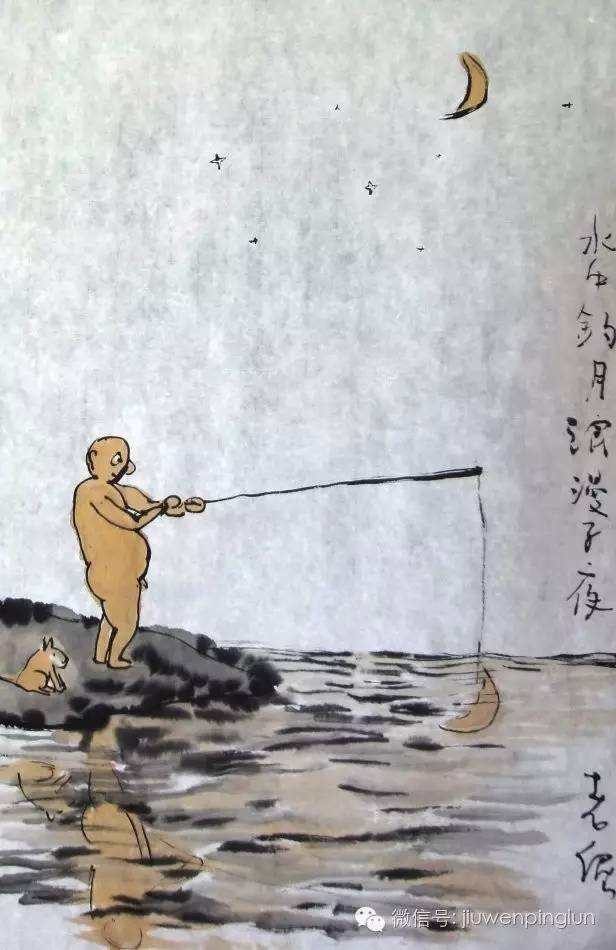 水中釣月浪漫子夜
微信号: jiuwenpinglun